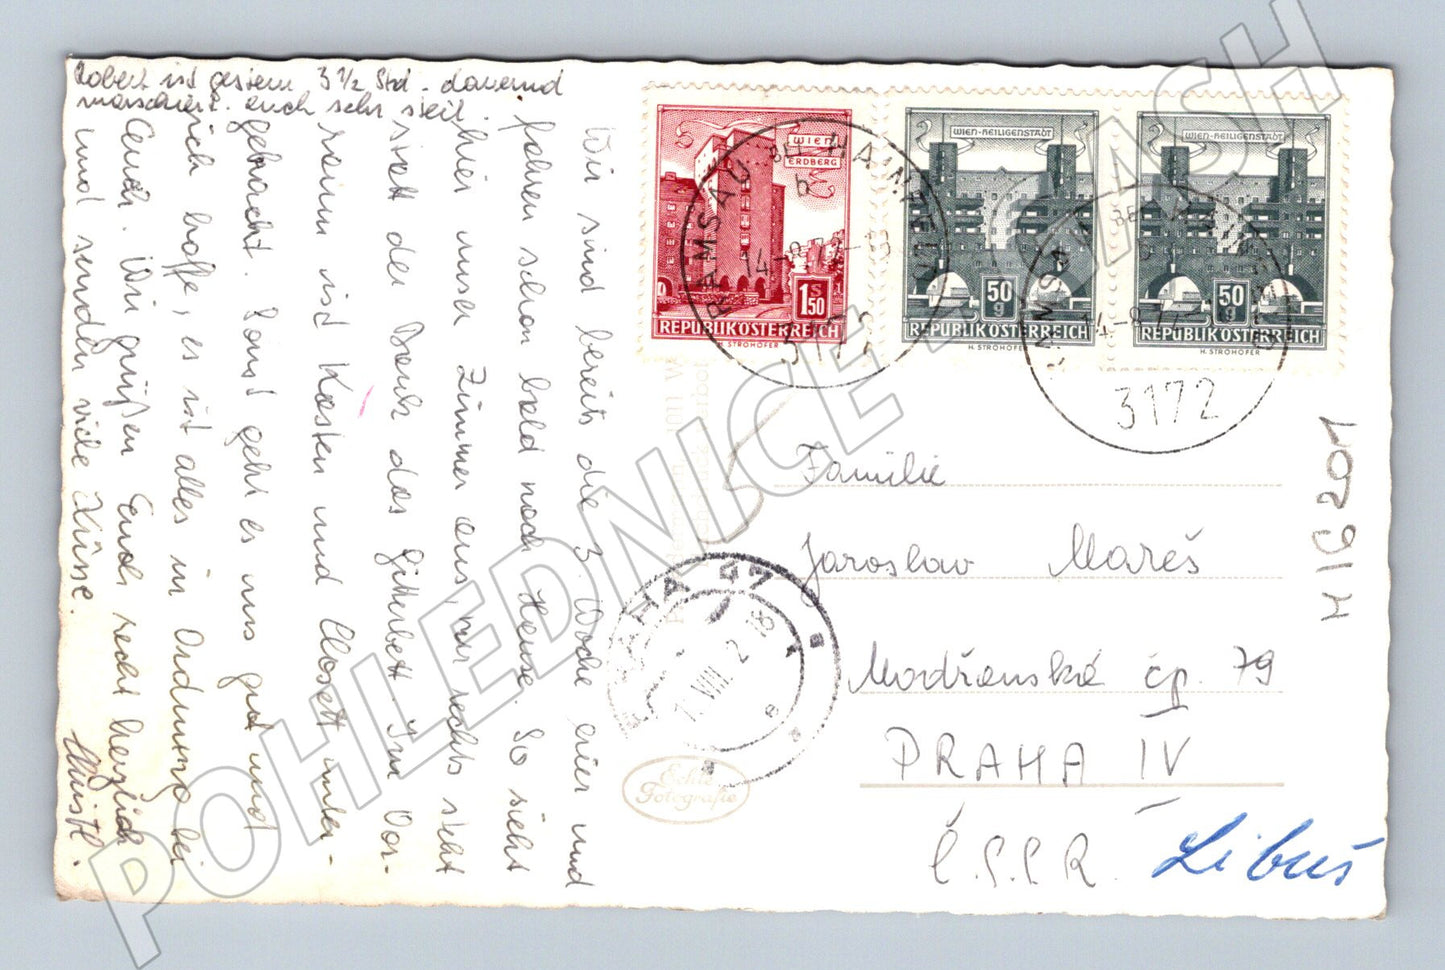 Robert ist gestern 3 1/2 Std. dauernd
marschiert. auch sehr steil.
Wir sind bereits die 3. Woche hier und
fahren schon bald nach Hause. So sieht
hier unser Zimmer aus, nur rechts steht
statt der Bank das Gitterbett. Im Vor-
raum ist Kasten und Closett unter-
gebracht. Sonst geht es uns gut und
ich hoffe, es ist alles in Ordnung bei
Euch. Wir grüßen Euch recht herzlich
und senden viele Küsse.
Christl.
WIEN
ERDBERG
1 S 50
REPUBLIK ÖSTERREICH
H. STROHOFER
WIEN-HEILIGENSTADT
50 g
REPUBLIK ÖSTERREICH
H. STROHOFER
WIEN-HEILIGENSTADT
50 g
REPUBLIK ÖSTERREICH
H. STROHOFER
RAMSAU BEI HAINFELD
b
3172
3172
PRAHA 47
Familie
Jaroslav Mareš
Modřanská čp. 79
PRAHA IV
Č.S.S.R.
Libuš
M16201
Echte
Fotografie
POHLEDNICE ZA CASH